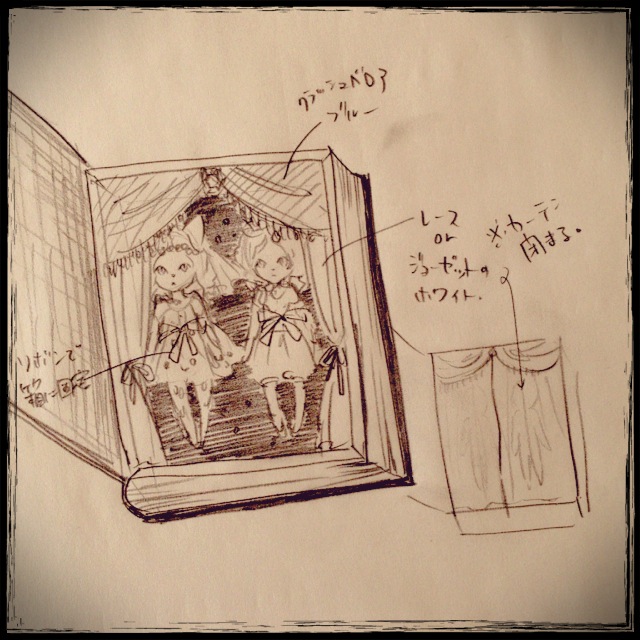 クラッシュベロア
ブルー
レース
or
ジョーゼットの
ホワイト.
※カーテン
閉まる。
リボンで
箱に固定